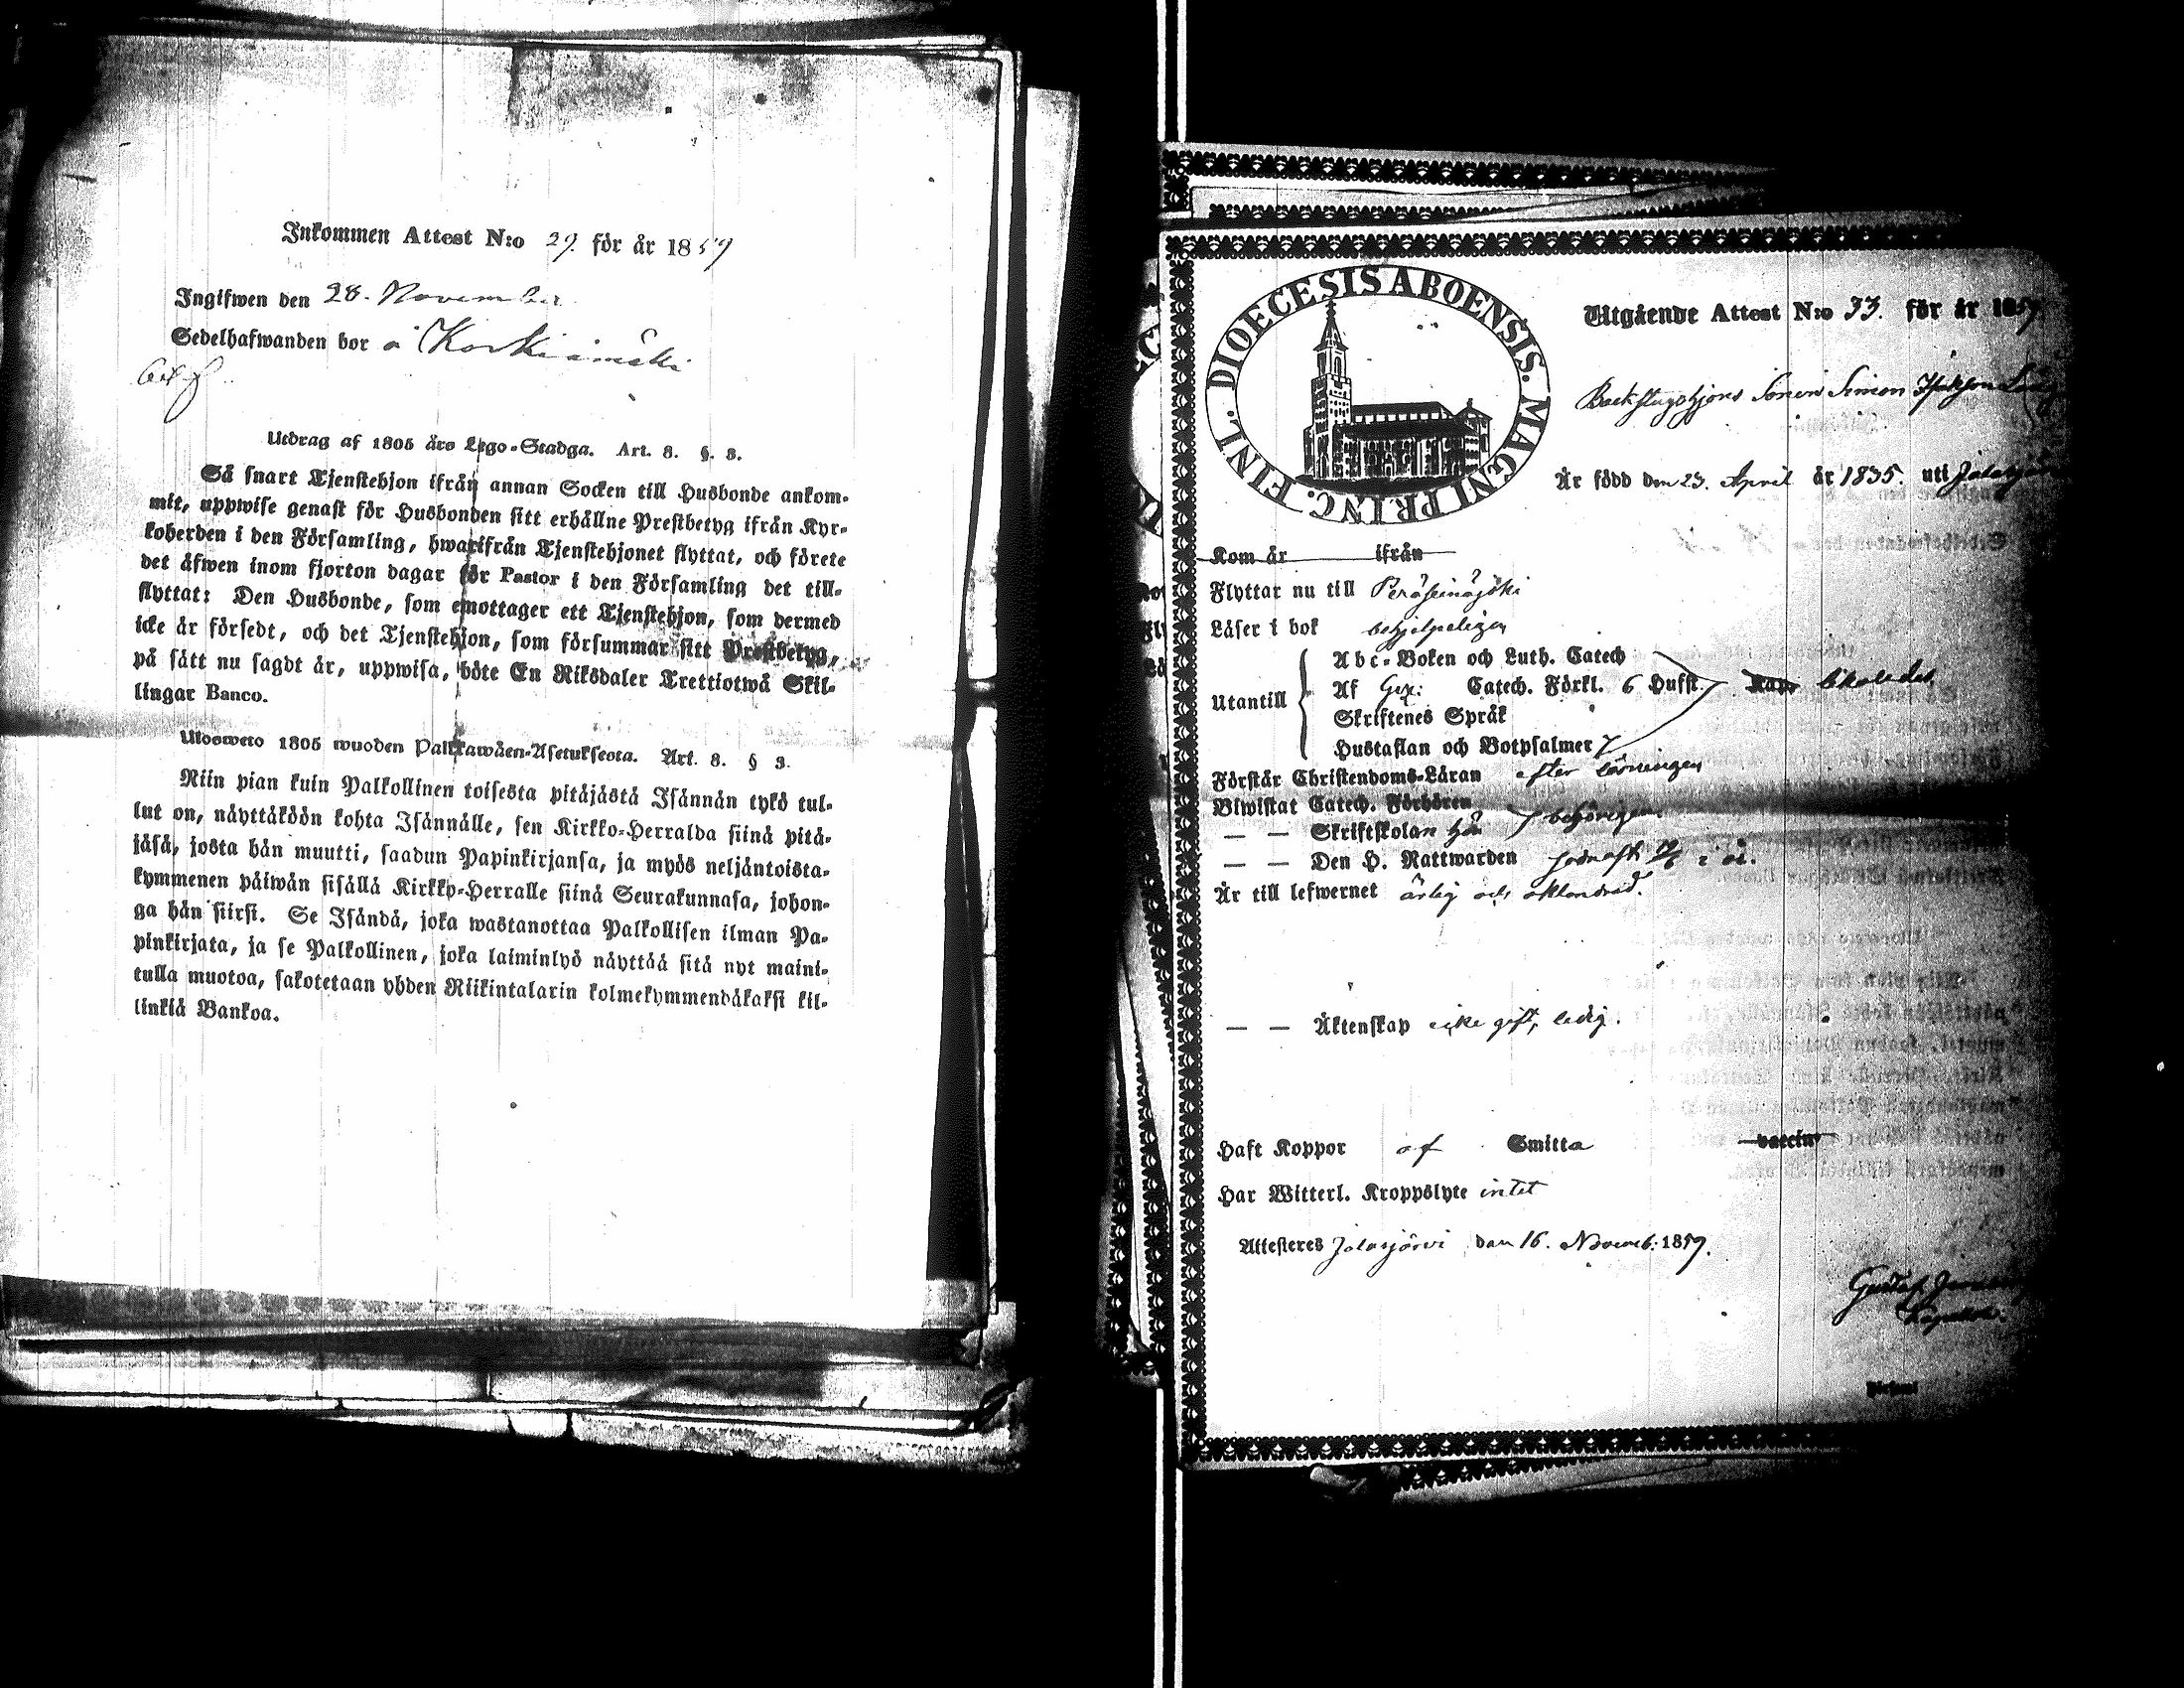 Inkommen Attest N:o 29. för år 1859
Ingifwen den 28. November
Sedelhafwanden bor å Korkiamäki
Utdrag af 1805 års Lego-Stadga. Art. 8. §. 3.
Så snart Tjenstehjon ifrån annan Socken till Husbonde ankom-
mit, uppwise genast för Husbonden sitt erhållne Prestbetyg ifrån Kyr-
koherden i den Församling, hwarifrån Tjenstehjonet flyttat, och förete
det äfwen inom fjorton dagar för Pastor i den Församling det till-
flyttat: Den Husbonde, som emottager ett Tjenstehjon, som dermed
icke är försedt, och det Tjenstehjon, som försummar sitt Prestbetyg,
på sätt nu sagdt är, uppwisa, böte En Riksdaler Trettiotwå Skil-
lingar Banco.
Ulosweto 1805 wuoden Palkkawäen-Asetuksesta. Art. 8. § 3.
Niin pian kuin Palkollinen toisesta pitäjästä Isännän tykö tul-
lut on, näyttäköön kohta Isännälle, sen Kirkko-Herralda siinä pitä-
jäsä, josta hän muutti, saadun Papinkirjansa, ja myös neljäntoista-
kymmenen päiwän sisällä Kirkko-Herralle siinä Seurakunnasa, johon-
ga hän siirsi. Se Isändä, joka wastanottaa Palkollisen ilman Pa-
pinkirjata, ja se Palkollinen, joka laiminlyö näyttää sitä nyt maini-
tulla muotoa, sakotetaan yhden Riikintalarin kolmekymmendäkaksi kil-
linkiä Bankoa.
DIOECESIS ABOENSIS. MAGNI PRINC. FINL.
Utgående Attest N:o 33. för år 1859
Backstugohjons Sonen Simon
Är född den 23. April år 1835. uti Jalasjärvi
Kom år ifrån
Flyttar nu till Peräseinäjoki
Läser i bok behjelpeligen
Utantill
Abc-Boken och Luth. Catech
Af Gez: Catech. Förkl. 6 Hufst. likaledes
Skriftenes Språk
Hustaflan och Botpsalmer 7
Förstår Christendoms-Läran efter läsningen
Biwistat Catech. Förhören
— — Skriftskolan behörigen
— — Den H. Nattwarden sednast i år.
Är till lefwernet ärlig och oklandrad.
— — Äktenskap icke gift, ledig.
Haft Koppor af Smitta vaccin
Har Witterl. Kroppslyte intet
Attesteras Jalasjärvi den 16. Novemb: 1859.
Gustaf